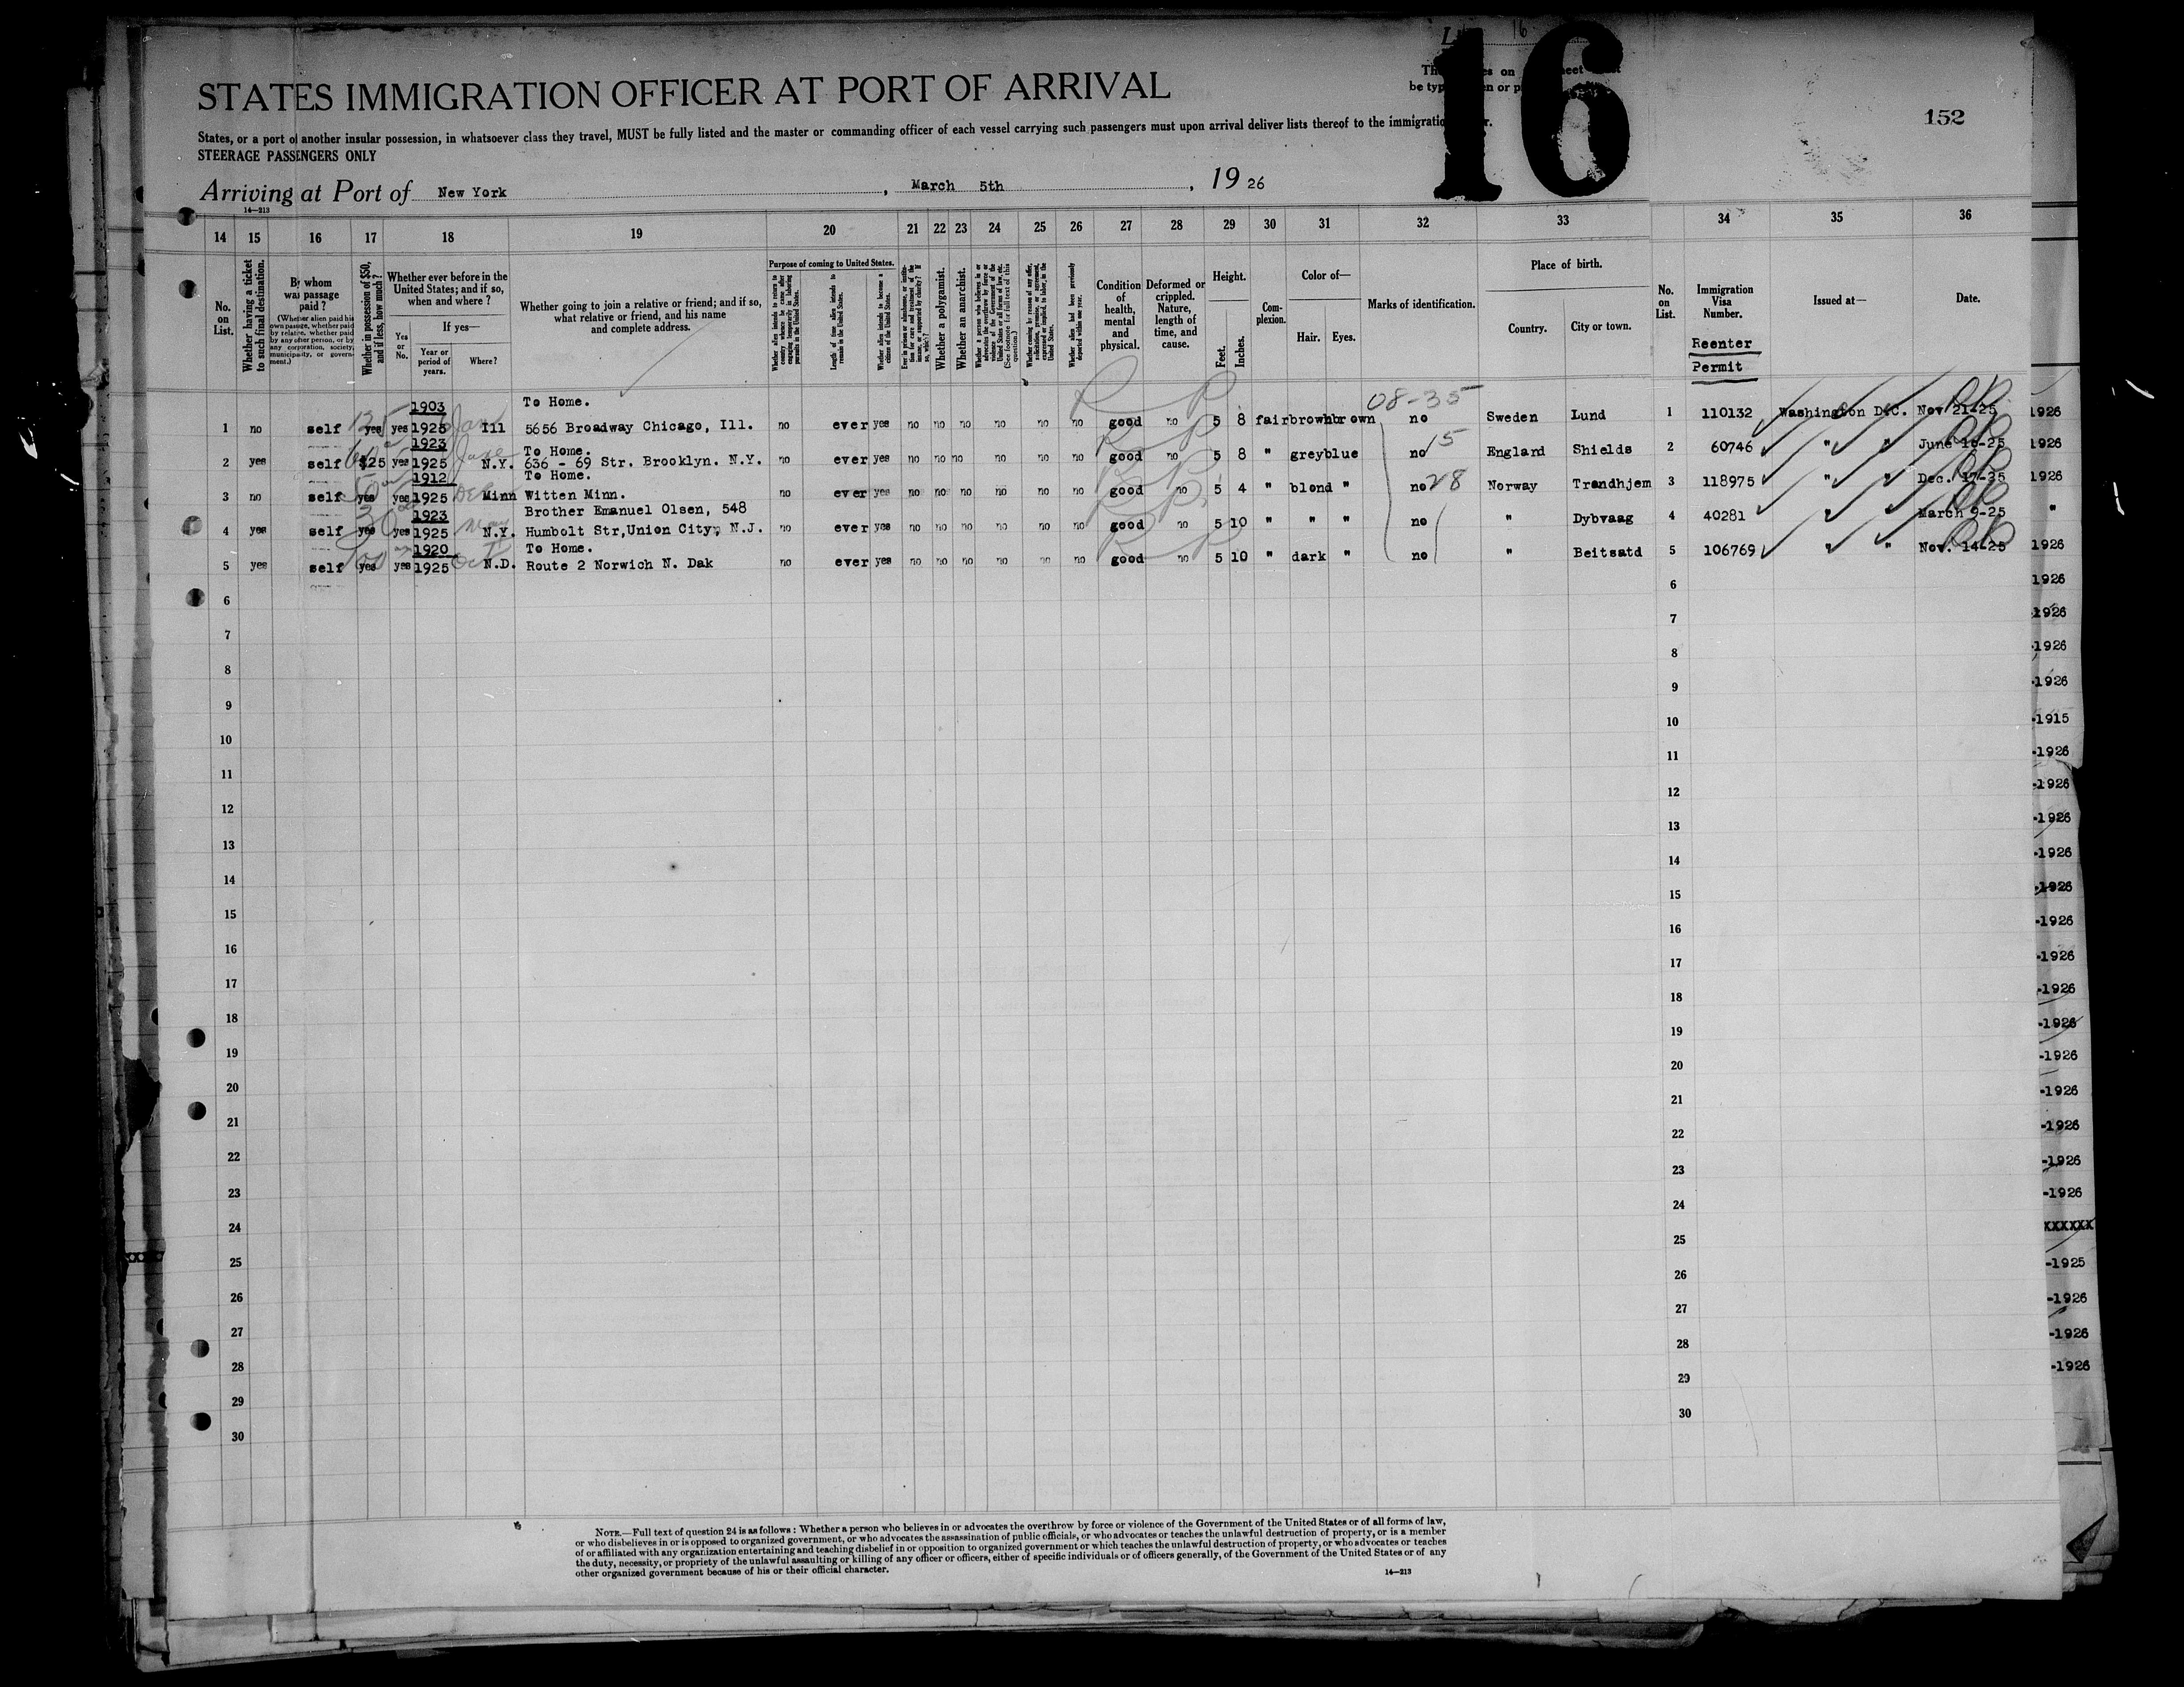 16
152
STATES IMMIGRATION OFFICER AT PORT OF ARRIVAL
States, or a port of another insular possession, in whatsoever class they travel, MUST be fully listed and the master or commanding officer of each vessel carrying such passengers must upon arrival deliver lists thereof to the
STEERAGE PASSENGERS ONLY
Arriving at Port of New York, March 5th, 19 26
14—213
14 15 16 17 18 19 20 21 22 23 24 25 26 27 28 29 30 31 32 33 34 35 36
No. on List.
Whether having a ticket to such final destination.
By whom was passage paid?
(Whether alien paid his own passage, whether paid by relative, whether paid by any other person, or by any corporation, society, municipality, or government.)
Whether in possession of $50, and if less, how much?
Whether ever before in the United States; and if so, when and where?
Yes or No.
If yes—
Year or period of years.
Where?
Whether going to join a relative or friend; and if so, what relative or friend, and his name and complete address.
Purpose of coming to United States.
Length of time alien intends to remain in the United States.
Whether alien intends to become a citizen of the United States.
Whether a polygamist.
Whether an anarchist.
Condition of health, mental and physical.
Deformed or crippled. Nature, length of time, and cause.
Height.
Feet.
Inches.
Complexion.
Color of—
Hair.
Eyes.
Marks of identification.
Place of birth.
Country.
City or town.
No. on List.
Immigration Visa Number.
Reenter
Permit
Issued at—
Date.
08-35
1903 To Home.
1 no self 125 yes yes 1925 Ill 5656 Broadway Chicago, Ill. no ever yes no no no no no no good no 5 8 fair brown brown no Sweden Lund 1 110132 Washington D.C. Nov 21-25
1923 To Home.
2 yes self $25 yes 1925 N.Y. 636 - 69 Str. Brooklyn. N.Y. no ever yes no no no no no no good no 5 8 " grey blue no 15 England Shields 2 60746 " " June 16-25
1912 To Home.
3 no self yes yes 1925 Minn Witten Minn. no ever yes no no no no no no good no 5 4 " blond " no 28 Norway Trondhjem 3 118975 " " Dec. 17-25
1923 Brother Emanuel Olsen, 548
4 yes self yes yes 1925 N.Y. Humbolt Str, Union City, N.J. no ever yes no no no no no no good no 5 10 " " " no " Dybvaag 4 40281 " " March 9-25
1920 To Home.
5 yes self yes yes 1925 N.D. Route 2 Norwich N. Dak no ever yes no no no no no no good no 5 10 " dark " no " Beitsatd 5 106769 " " Nov. 14-25
6 6
7 7
8 8
9 9
10 10
11 11
12 12
13 13
14 14
15 15
16 16
17 17
18 18
19 19
20 20
21 21
22 22
23 23
24 24
25 25
26 26
27 27
28 28
29 29
30 30
1926
1926
1926
"
1926
1926
-1926
-1926
-1926
-1915
-1926
-1926
-1926
-1926
-1926
-1926
-1926
-1926
-1926
-1926
-1926
-1926
-1926
-1926
XXXXXX
-1925
-1926
-1926
-1926
NOTE.—Full text of question 24 is as follows: Whether a person who believes in or advocates the overthrow by force or violence of the Government of the United States or of all forms of law,
or who disbelieves in or is opposed to organized government, or who advocates the assassination of public officials, or who advocates or teaches the unlawful destruction of property, or is a member
of or affiliated with any organization entertaining and teaching disbelief in or opposition to organized government or which teaches the unlawful destruction of property, or who advocates or teaches
the duty, necessity, or propriety of the unlawful assaulting or killing of any officer or officers, either of specific individuals or of officers generally, of the Government of the United States or of any
other organized government because of his or their official character.
14—213